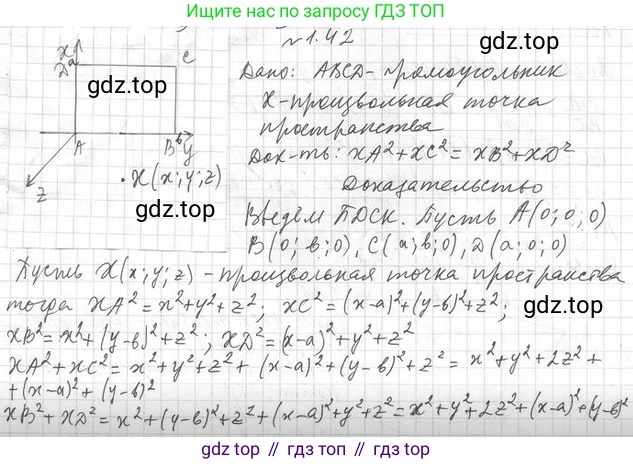 Ищите нас по поиску ГДЗ ТОП
№1.42
x
D a
C
A
B в y
z
• X(x; y; z)
gdz.top
gdz.top
Дано: ABCD - прямоугольник
X - произвольная точка
пространства
Док-ть: XA² + XC² = XB² + XD²
Доказательство
Введём ПДСК. Пусть A(0; 0; 0)
B(0; в; 0), C(a; в; 0), D(a; 0; 0)
Пусть X(x; y; z) - произвольная точка пространства
тогда XA² = x² + y² + z²; XC² = (x-a)² + (y-в)² + z²;
gdz.top
XB² = x² + (y-в)² + z²; XD² = (x-a)² + y² + z²
XA² + XC² = x² + y² + z² + (x-a)² + (y-в)² + z² = x² + y² + 2z² +
+ (x-a)² + (y-в)²
XB² + XD² = x² + (y-в)² + z² + (x-a)² + y² + z² = x² + y² + 2z² + (x-a)² + (y-в)²
gdz.top // гдз.топ // gdz.top